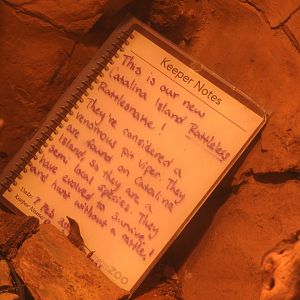 Keeper Notes
This is our new
Catalina Island Rattleless
Rattlesnake!
They're considered a
venomous pit viper. They
are found on Catalina
Island, so they are a
semi local species. They
have evolved to survive &
hunt without a rattle!
Date: 7 Feb
Keeper Name:
ZOO